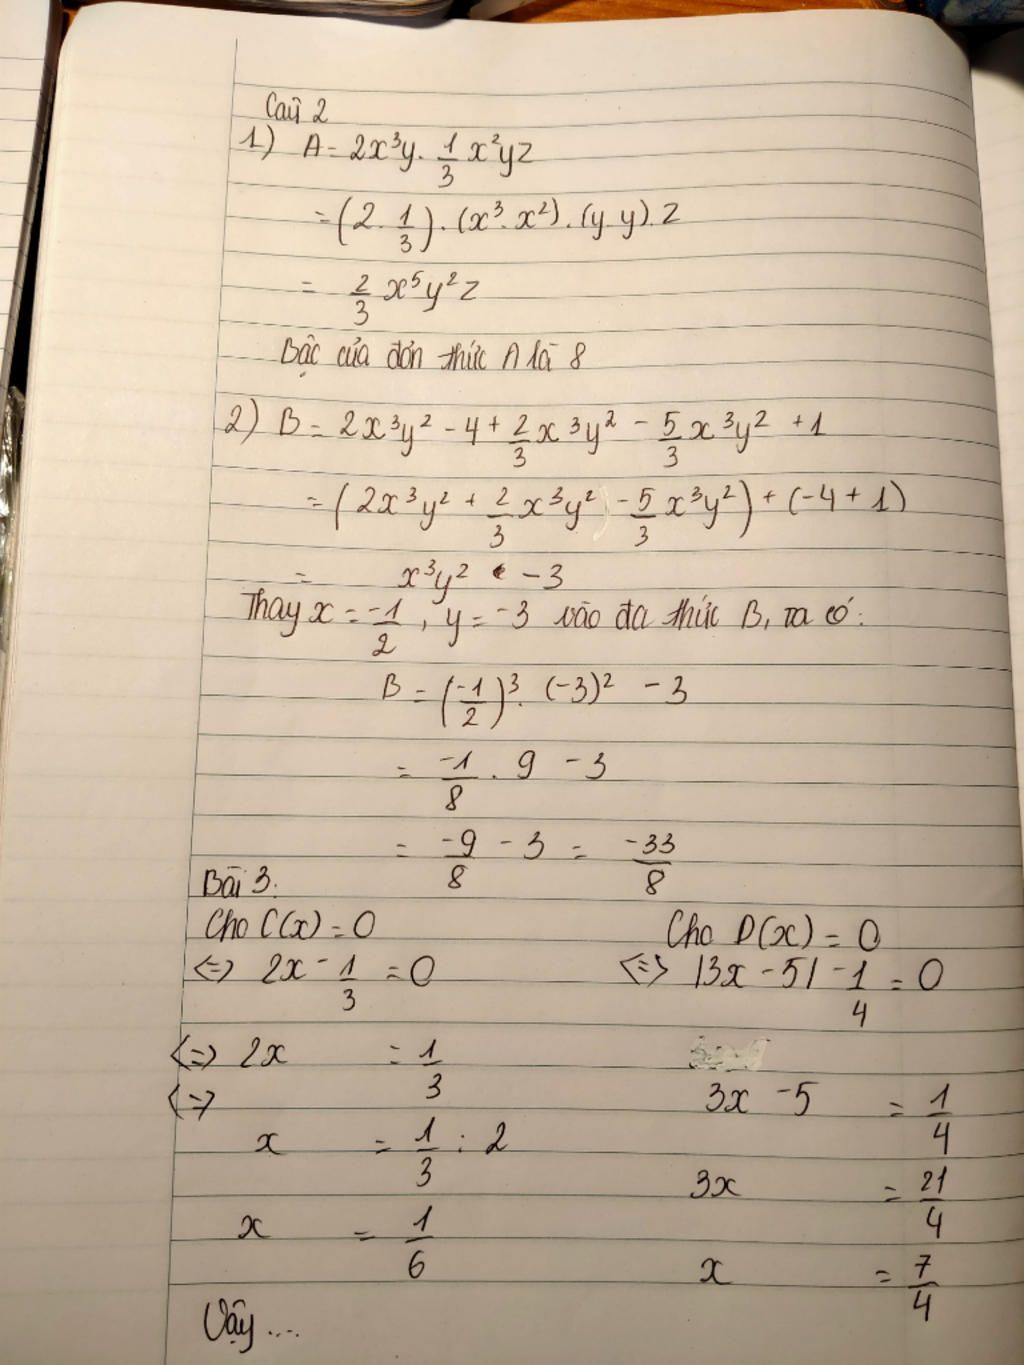 Câu 2
1) A = 2x³y . 1/3 x²yz
= (2 . 1/3) . (x³ . x²) . (y . y) . z
= 2/3 x⁵y²z
Bậc của đơn thức A là 8
2) B = 2x³y² - 4 + 2/3 x³y² - 5/3 x³y² + 1
= (2x³y² + 2/3 x³y² - 5/3 x³y²) + (-4 + 1)
= x³y² - 3
Thay x = -1/2, y = -3 vào đa thức B, ta có:
B = (-1/2)³ . (-3)² - 3
= -1/8 . 9 - 3
= -9/8 - 3 = -33/8
Bài 3:
Cho C(x) = 0
<=> 2x - 1/3 = 0
<=> 2x = 1/3
<=>
x = 1/3 : 2
x = 1/6
Vậy ....
Cho D(x) = 0
<=> |3x - 5| - 1/4 = 0
3x - 5 = 1/4
3x = 21/4
x = 7/4